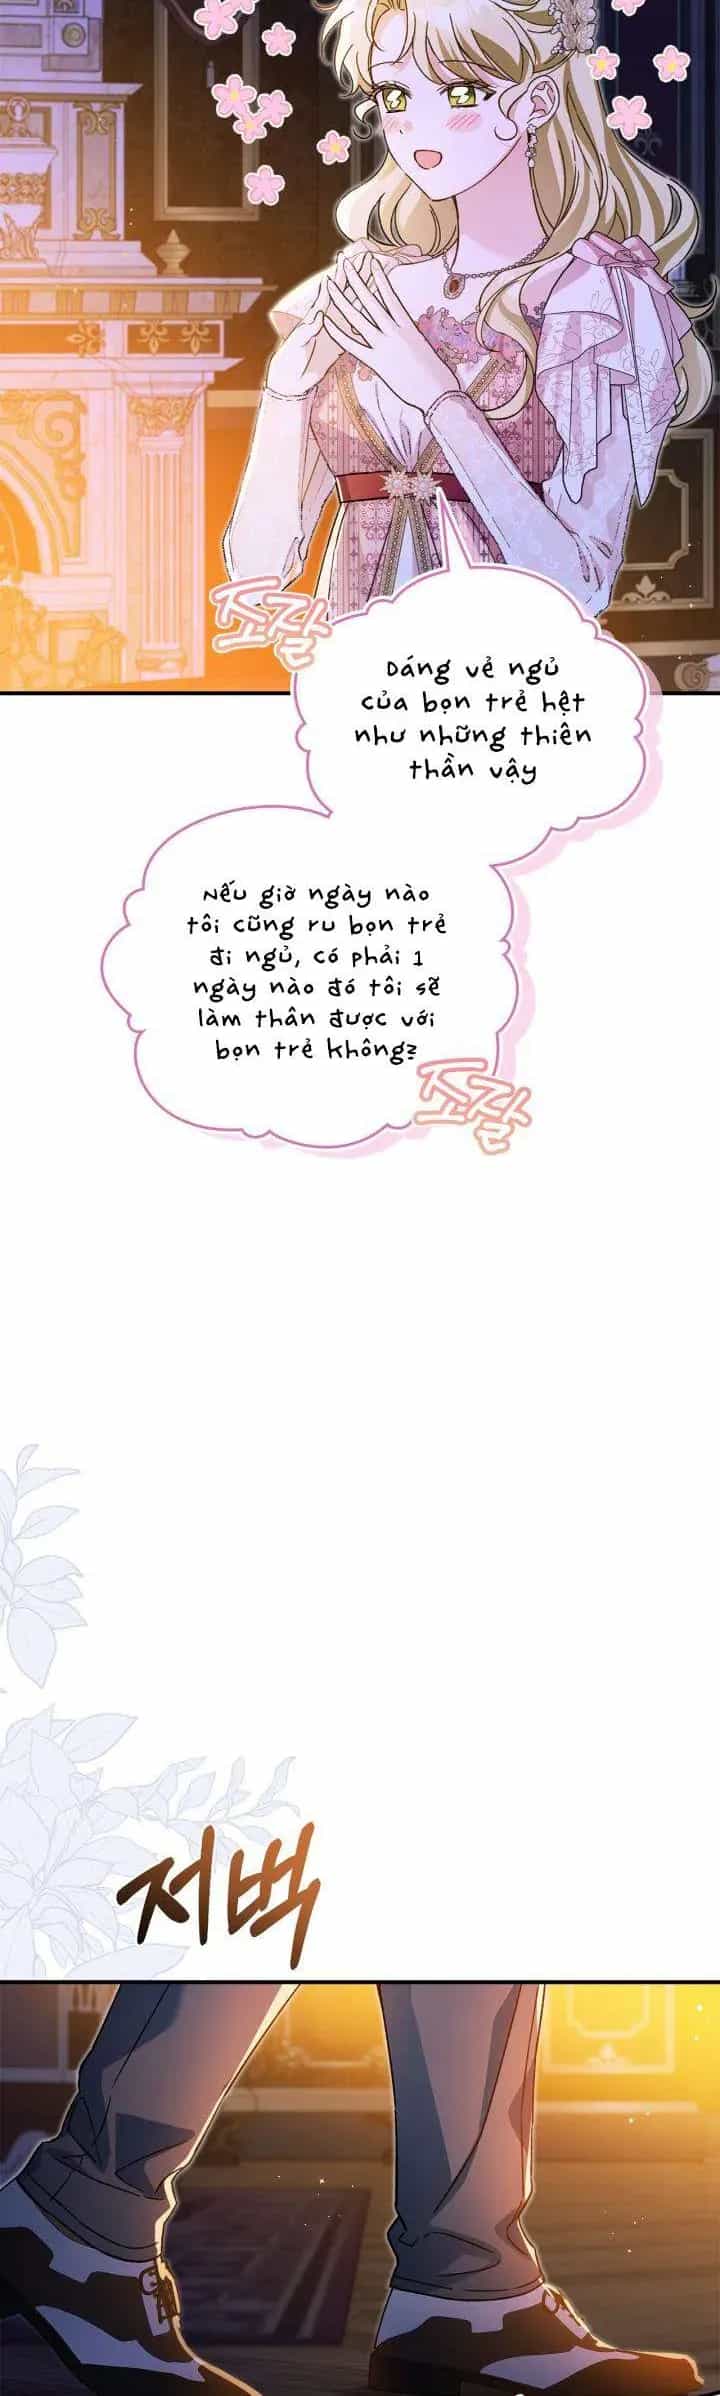 조잘
Dáng vẻ ngủ
của bọn trẻ hệt
như những thiên
thần vậy
Nếu giờ ngày nào
tôi cũng ru bọn trẻ
đi ngủ, có phải 1
ngày nào đó tôi sẽ
làm thân được với
bọn trẻ không?
조잘
저벅